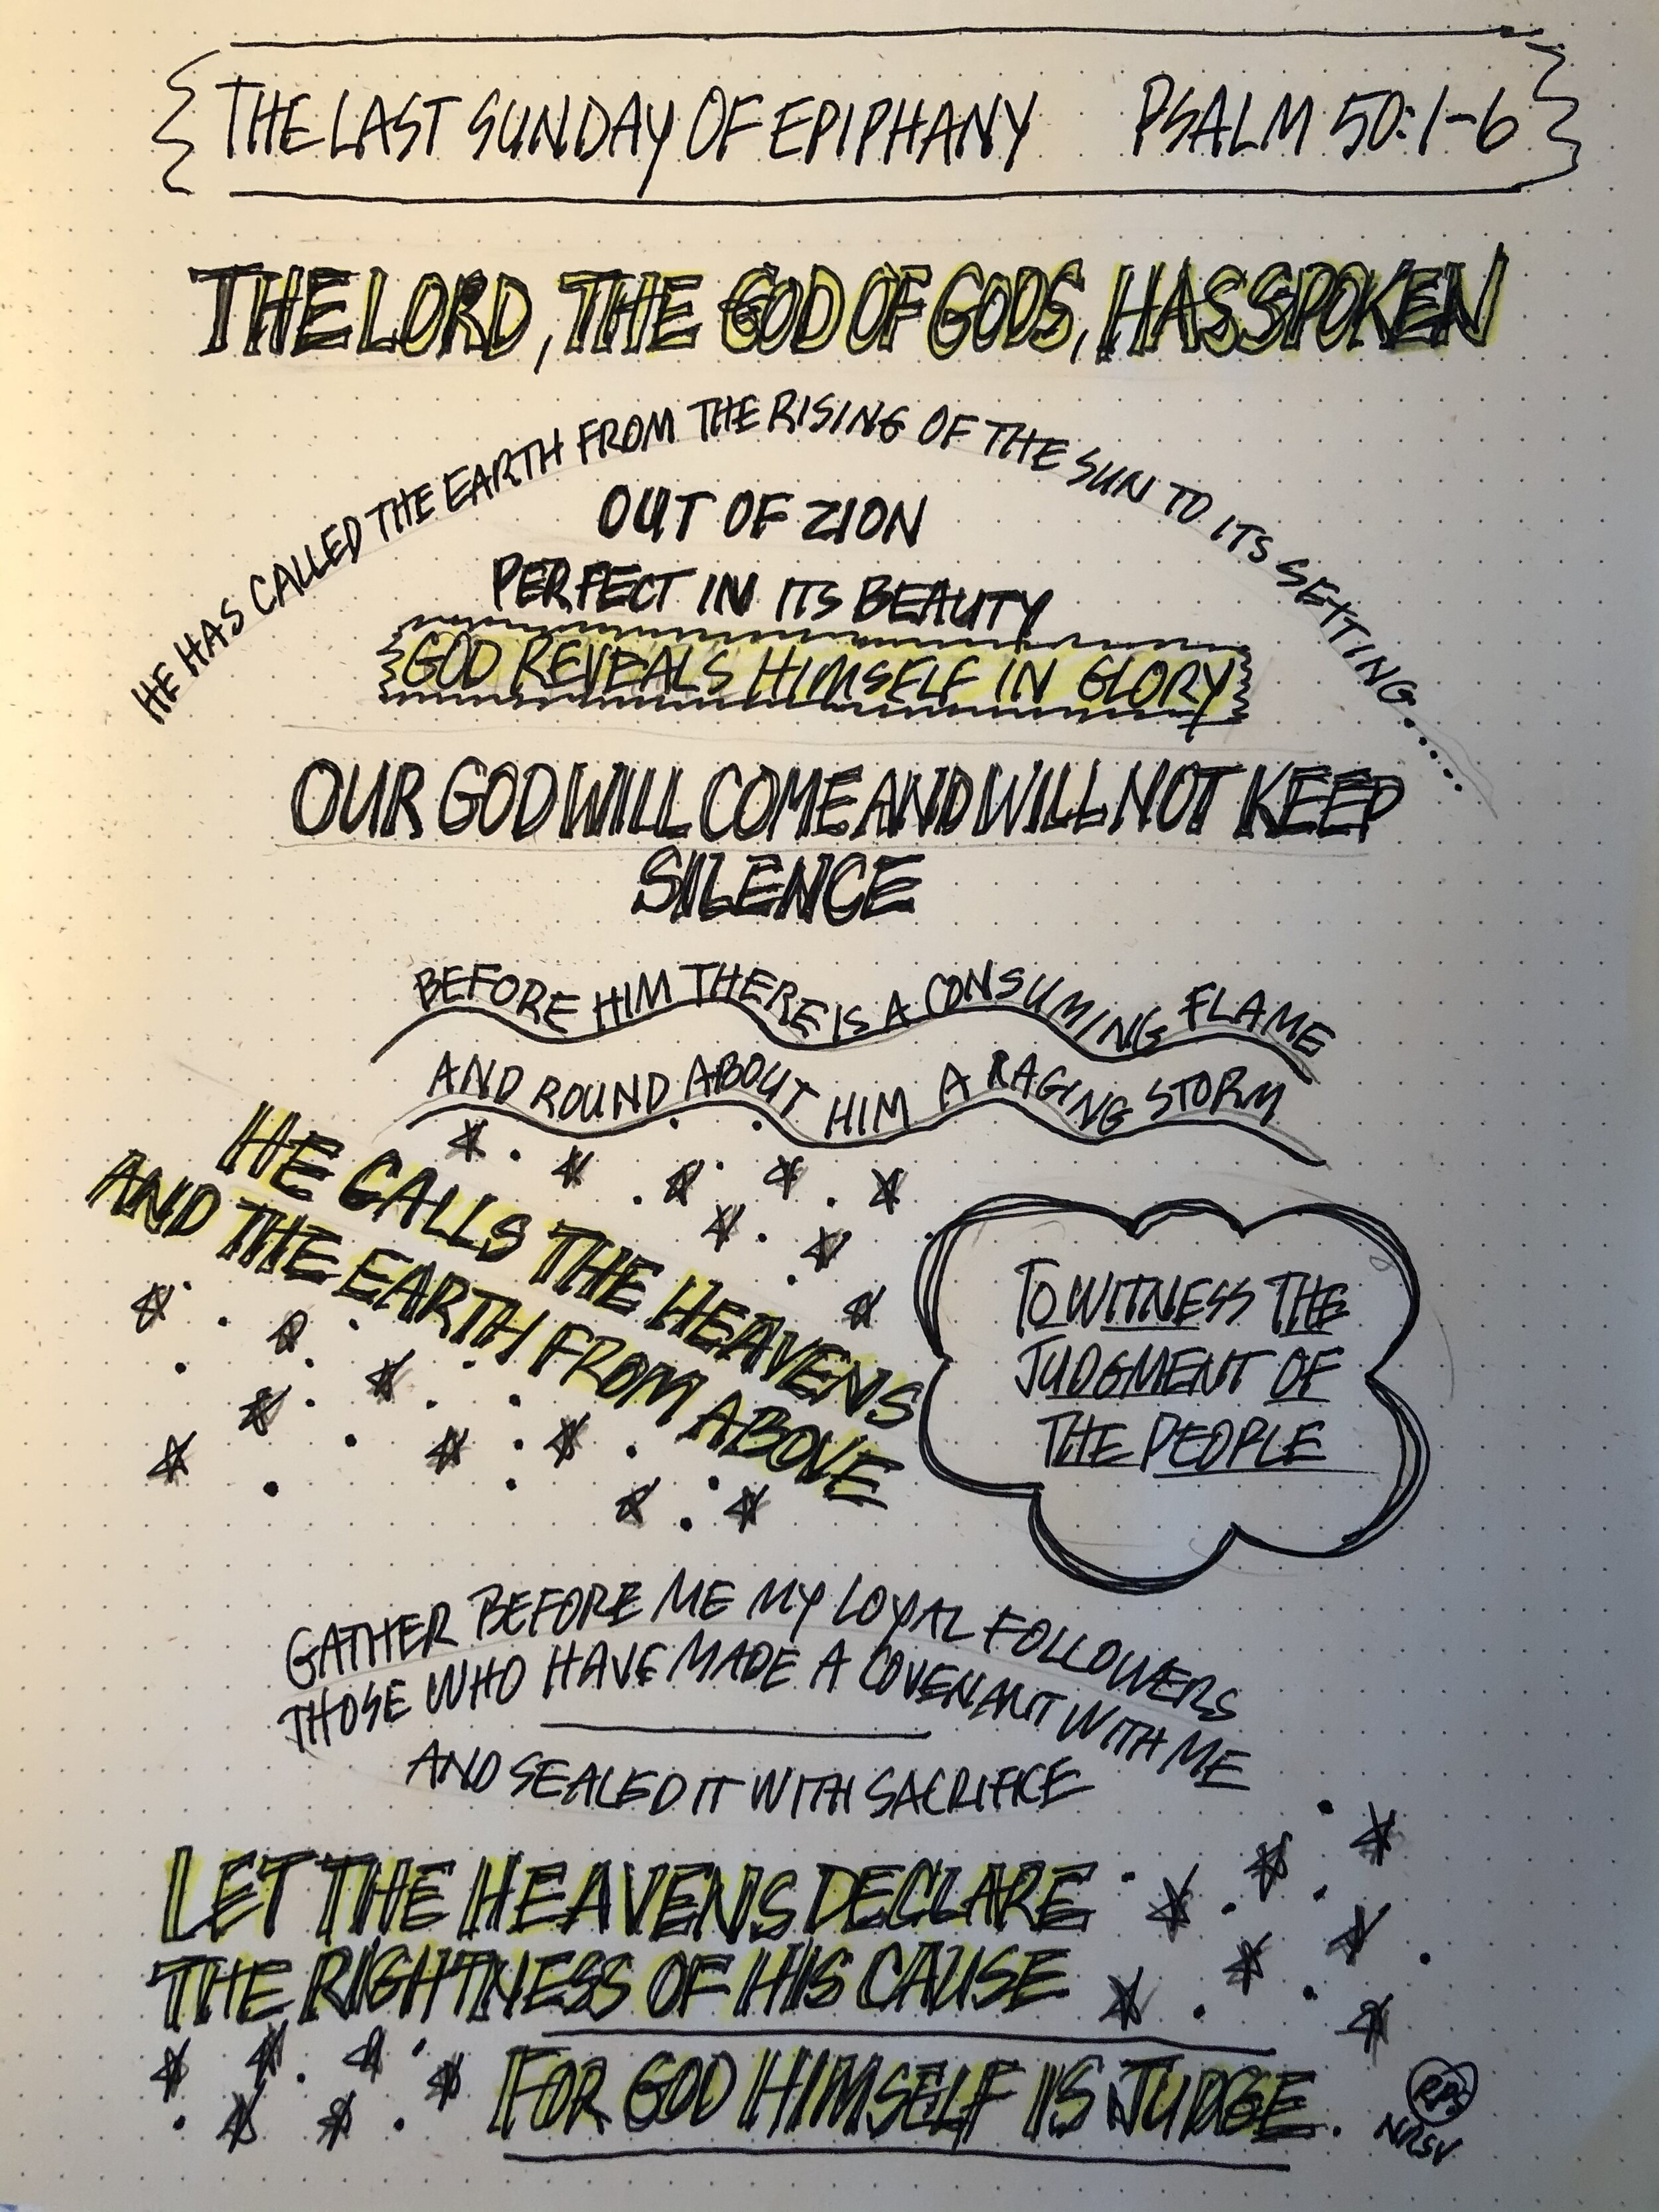 THE LAST SUNDAY OF EPIPHANY PSALM 50:1-6
THE LORD, THE GOD OF GODS, HAS SPOKEN
HE HAS CALLED THE EARTH FROM THE RISING OF THE SUN TO ITS SETTING.....
OUT OF ZION
PERFECT IN ITS BEAUTY
GOD REVEALS HIMSELF IN GLORY
OUR GOD WILL COME AND WILL NOT KEEP
SILENCE
BEFORE HIM THERE IS A CONSUMING FLAME
AND ROUND ABOUT HIM A RAGING STORM
HE CALLS THE HEAVENS
AND THE EARTH FROM ABOVE
TO WITNESS THE
JUDGMENT OF
THE PEOPLE
GATHER BEFORE ME MY LOYAL FOLLOWERS
THOSE WHO HAVE MADE A COVENANT WITH ME
AND SEALED IT WITH SACRIFICE
LET THE HEAVENS DECLARE
THE RIGHTNESS OF HIS CAUSE
FOR GOD HIMSELF IS JUDGE.
NRSV